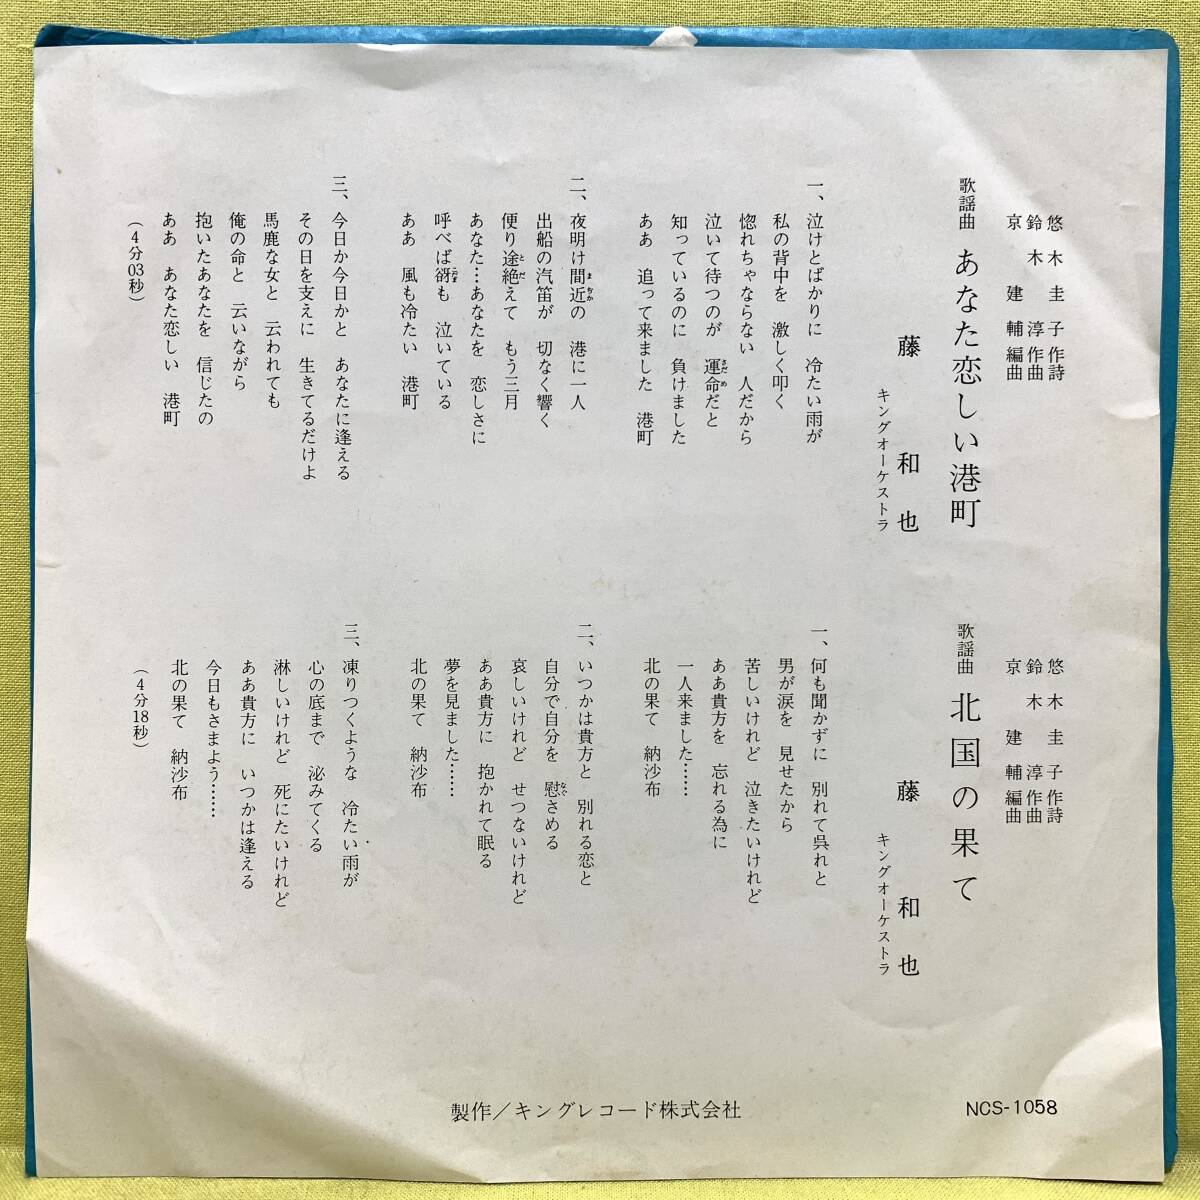 悠木圭子作詩
鈴木淳作曲
京建輔編曲
歌謡曲 あなた恋しい港町
藤和也
キングオーケストラ
一、泣けとばかりに 冷たい雨が
私の背中を 激しく叩く
惚れちゃならない 人だから
泣いて待つのが 運命だと
さだめ
知っているのに 負けました
ああ 追って来ました 港町
二、夜明け間近の 港に一人
まぢか
出船の汽笛が 切なく響く
便り途絶えて もう三月
とだ
あなた…あなたを 恋しさに
呼べば谺も 泣いている
こだま
ああ 風も冷たい 港町
三、今日か今日かと あなたに逢える
その日を支えに 生きてるだけよ
馬鹿な女と 云われても
俺の命と 云いながら
抱いたあなたを 信じたの
ああ あなた恋しい 港町
(4分03秒)
悠木圭子作詩
鈴木淳作曲
京建輔編曲
歌謡曲 北国の果て
藤和也
キングオーケストラ
一、何も聞かずに 別れて呉れと
男が涙を 見せたから
苦しいけれど 泣きたいけれど
ああ貴方を 忘れる為に
一人来ました……
北の果て 納沙布
二、いつかは貴方と 別れる恋と
自分で自分を 慰さめる
なぐ
哀しいけれど せつないけれど
ああ貴方に 抱かれて眠る
夢を見ました……
北の果て 納沙布
三、凍りつくような 冷たい雨が
心の底まで 泌みてくる
淋しいけれど 死にたいけれど
ああ貴方に いつかは逢える
今日もさまよう……
北の果て 納沙布
(4分18秒)
製作/キングレコード株式会社
NCS-1058